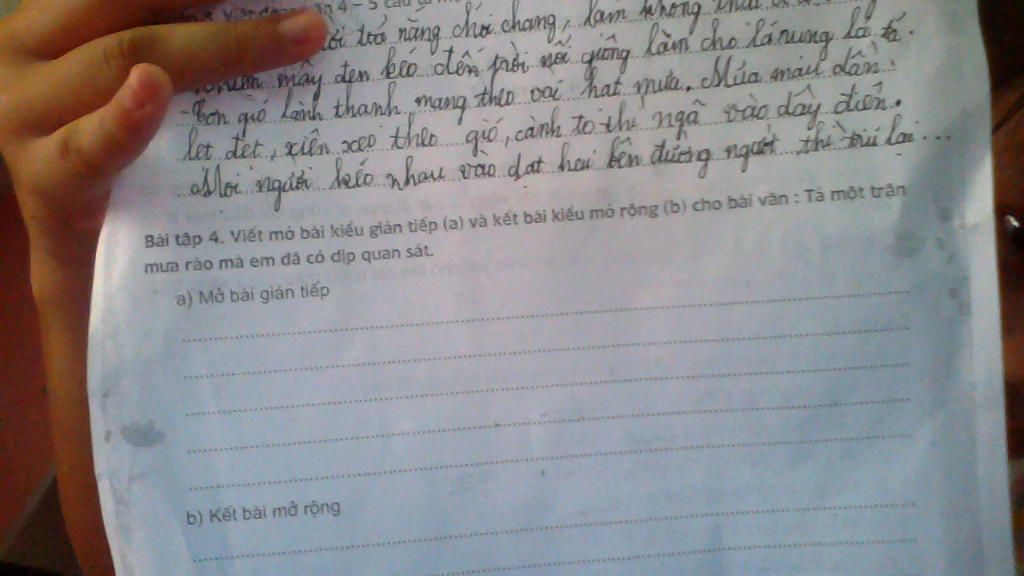 4 - 5 câu
nắng chói chang, làm không
mây đen kéo đến trời nổi giông làm cho lá rung lả tả.
- Cơn gió lành thanh mang theo vài hạt mưa. Mưa mau dần.
lẹt đẹt, xiên xẹo theo gió, cành to thì ngã vào dây điện.
Mọi người kéo nhau vào dạt hai bên đường người thì trú lại ...
Bài tập 4. Viết mở bài kiểu gián tiếp (a) và kết bài kiểu mở rộng (b) cho bài văn : Tả một trận
mưa rào mà em đã có dịp quan sát.
a) Mở bài gián tiếp
b) Kết bài mở rộng